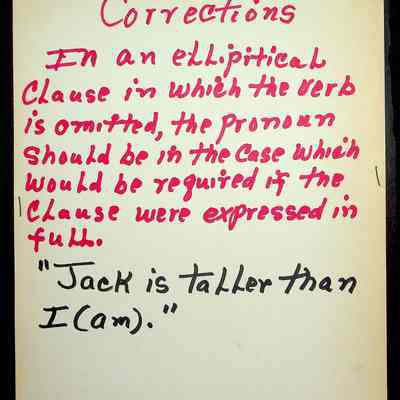 Corrections
In an elliptical
Clause in which the verb
is omitted, the pronoun
should be in the case which
would be required if the
Clause were expressed in
full.
"Jack is taller than
I (am)."